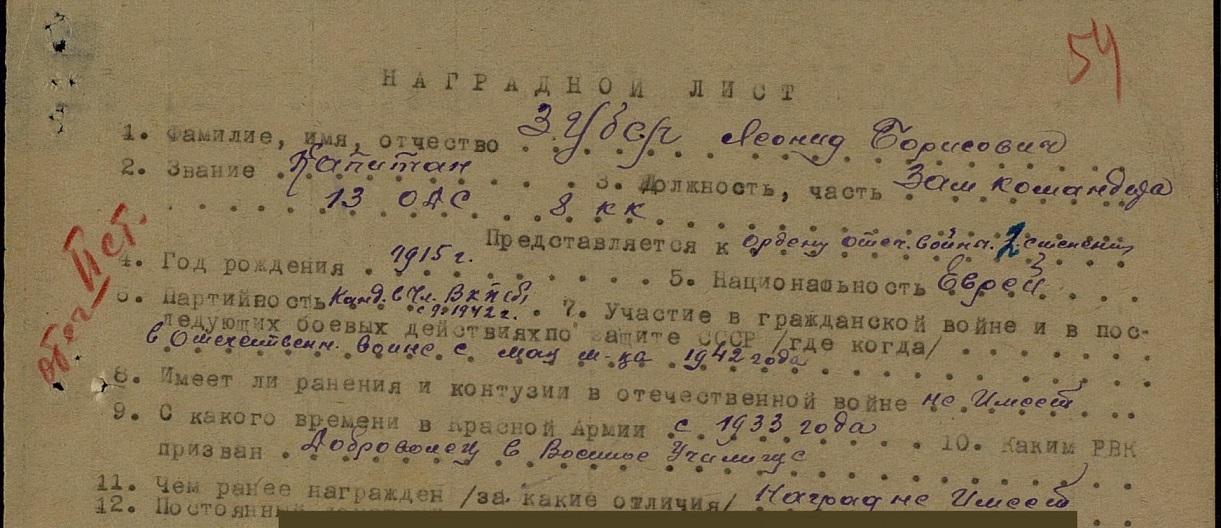 54
НАГРАДНОЙ ЛИСТ
1. Фамилие, имя, отчество Леонид Борисович
2. Звание Капитан 3. Должность, часть Зам командира
13 ОАС 8 кк
Представляется к ордену отеч. войны 2 степени
4. Год рождения 1915 г. 5. Национальность Еврей
6. Партийность Канд. в Чл. ВКП(б) 7. Участие в гражданской войне и в пос-
с 1942 г.
ледующих боевых действиях по защите СССР /где когда/
в Отечественн. войне с мая м-ца 1942 года
8. Имеет ли ранения и контузии в отечественной войне не Имеет
9. С какого времени в Красной Армии с 1933 года 10. Каким РВК
призван Доброволец в Военное Училище
11. Чем ранее награжден /за какие отличия/ Наград не Имеет
12. Постоянный
от. в. II ст.